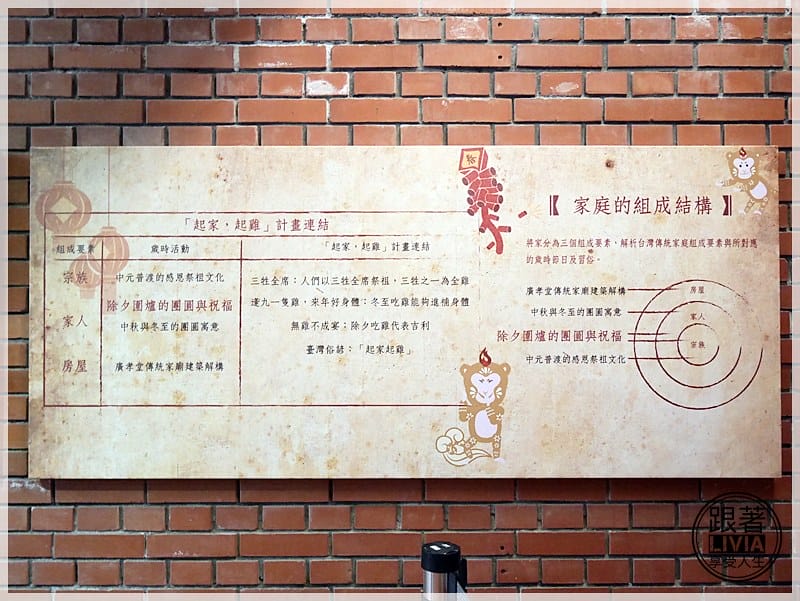 「起家，起雞」計畫連結
組成要素 歲時活動 「起家，起雞」計畫連結
宗族 中元普渡的感恩祭祖文化
家人 除夕圍爐的團圓與祝福
中秋與冬至的團圓寓意
房屋 廣孝堂傳統家廟建築解構
三牲全席：人們以三牲全席祭祖，三牲之一為全雞
逢九一隻雞，來年好身體：冬至吃雞能夠進補身體
無雞不成宴：除夕吃雞代表吉利
臺灣俗諺：「起家起雞」
【家庭的組成結構】
將家分為三個組成要素，解析台灣傳統家庭組成要素與所對應
的歲時節日及習俗。
廣孝堂傳統家廟建築解構 房屋
中秋與冬至的團圓寓意 家人
除夕圍爐的團圓與祝福 宗族
中元普渡的感恩祭祖文化
跟著
LIVIA
享受人生